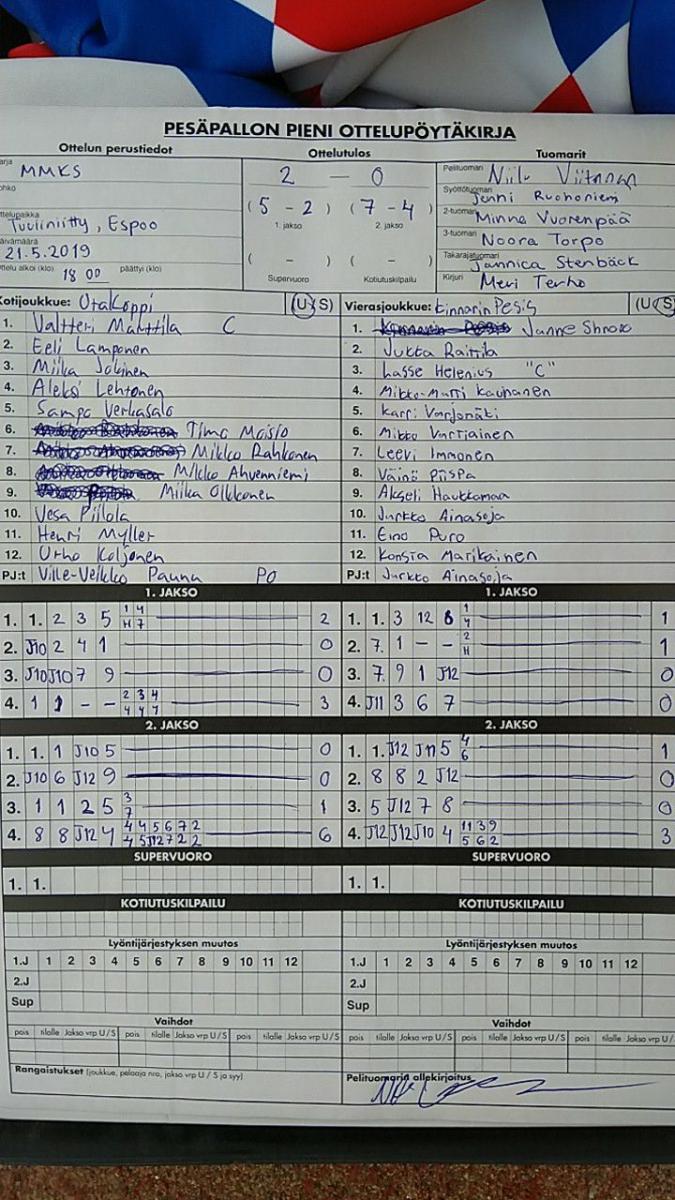 PESÄPALLON PIENI OTTELUPÖYTÄKIRJA
Ottelun perustiedot
Ottelutulos
Tuomarit
arja MMKS
ohko
ttelupaikka Tuuliniitty, Espoo
äivämäärä 21.5.2019
ttelu alkoi (klo) 18 00 päättyi (klo)
2 — 0
( 5 - 2 ) ( 7 - 4 )
1. jakso 2. jakso
( - ) ( - )
Supervuoro Kotiutuskilpailu
Pelituomari Niilo Viitanen
Syöttötuomari Jenni Ruohoniemi
2-tuomari Minna Vuorenpää
3-tuomari Noora Torpo
Takarajatuomari Jannica Stenbäck
Kirjuri Meri Terho
Kotijoukkue: UraKoppi (U/S)
1. Valtteri Malttila C
2. Eeli Lamponen
3. Miika Jokinen
4. Aleksi Lehtonen
5. Sampo Verkasalo
6. Timo Maisio
7. Mikko Rahkonen
8. Mikko Ahvenniemi
9. Miika Olkkonen
10. Vesa Piilola
11. Henri Myller
12. Urho Koljonen
PJ:t Ville-Veikko Paunu PO
Vierasjoukkue: EinnarinPesis (U/S)
1. Janne
2. Jukka Raittila
3. Lasse Helenius "C"
4. Mikko-Matti Kauhanen
5. Karri Varjomäki
6. Mikko Vartiainen
7. Leevi Immonen
8. Väinö Piispa
9. Akseli Hautkamaa
10. Jurkko Ainasoja
11. Eino Puro
12. Konsta Marikainen
PJ:t Jurkko Ainasoja
1. JAKSO
1. 1. 2 3 5 1 4 H 7 2
2. J10 2 4 1 0
3. J10 J10 7 9 0
4. 1 1 - - 2 3 4 4 4 7 3
2. JAKSO
1. 1. 1 J10 5 0
2. J10 6 J12 9 0
3. 1 1 2 5 3 7 1
4. 8 8 J12 4 4 4 5 6 7 2 4 5 J12 7 2 2 6
SUPERVUORO
1. 1.
KOTIUTUSKILPAILU
Lyöntijärjestyksen muutos
1.J 1 2 3 4 5 6 7 8 9 10 11 12
2.J
Sup
Vaihdot
pois tilalle Jakso vrp U/S pois tilalle Jakso vrp U/S pois tilalle Jakso vrp U/S
Rangaistukset (joukkue, pelaaja nro, jakso vrp U / S ja syy)
1. JAKSO
1. 1. 3 12 6 1 4 1
2. 7. 1 - - 2 H 1
3. 7. 9 1 J12 0
4. J11 3 6 7 0
2. JAKSO
1. 1. J12 J11 5 4 6 1
2. 8 8 2 J12 0
3. 5 J12 7 8 0
4. J12 J12 J10 4 11 3 9 5 6 2 3
SUPERVUORO
1. 1.
KOTIUTUSKILPAILU
Lyöntijärjestyksen muutos
1.J 1 2 3 4 5 6 7 8 9 10 11 12
2.J
Sup
Vaihdot
pois tilalle Jakso vrp U/S pois tilalle Jakso vrp U/S pois tilalle Jakso vrp U/
Pelituomarin allekirjoitus